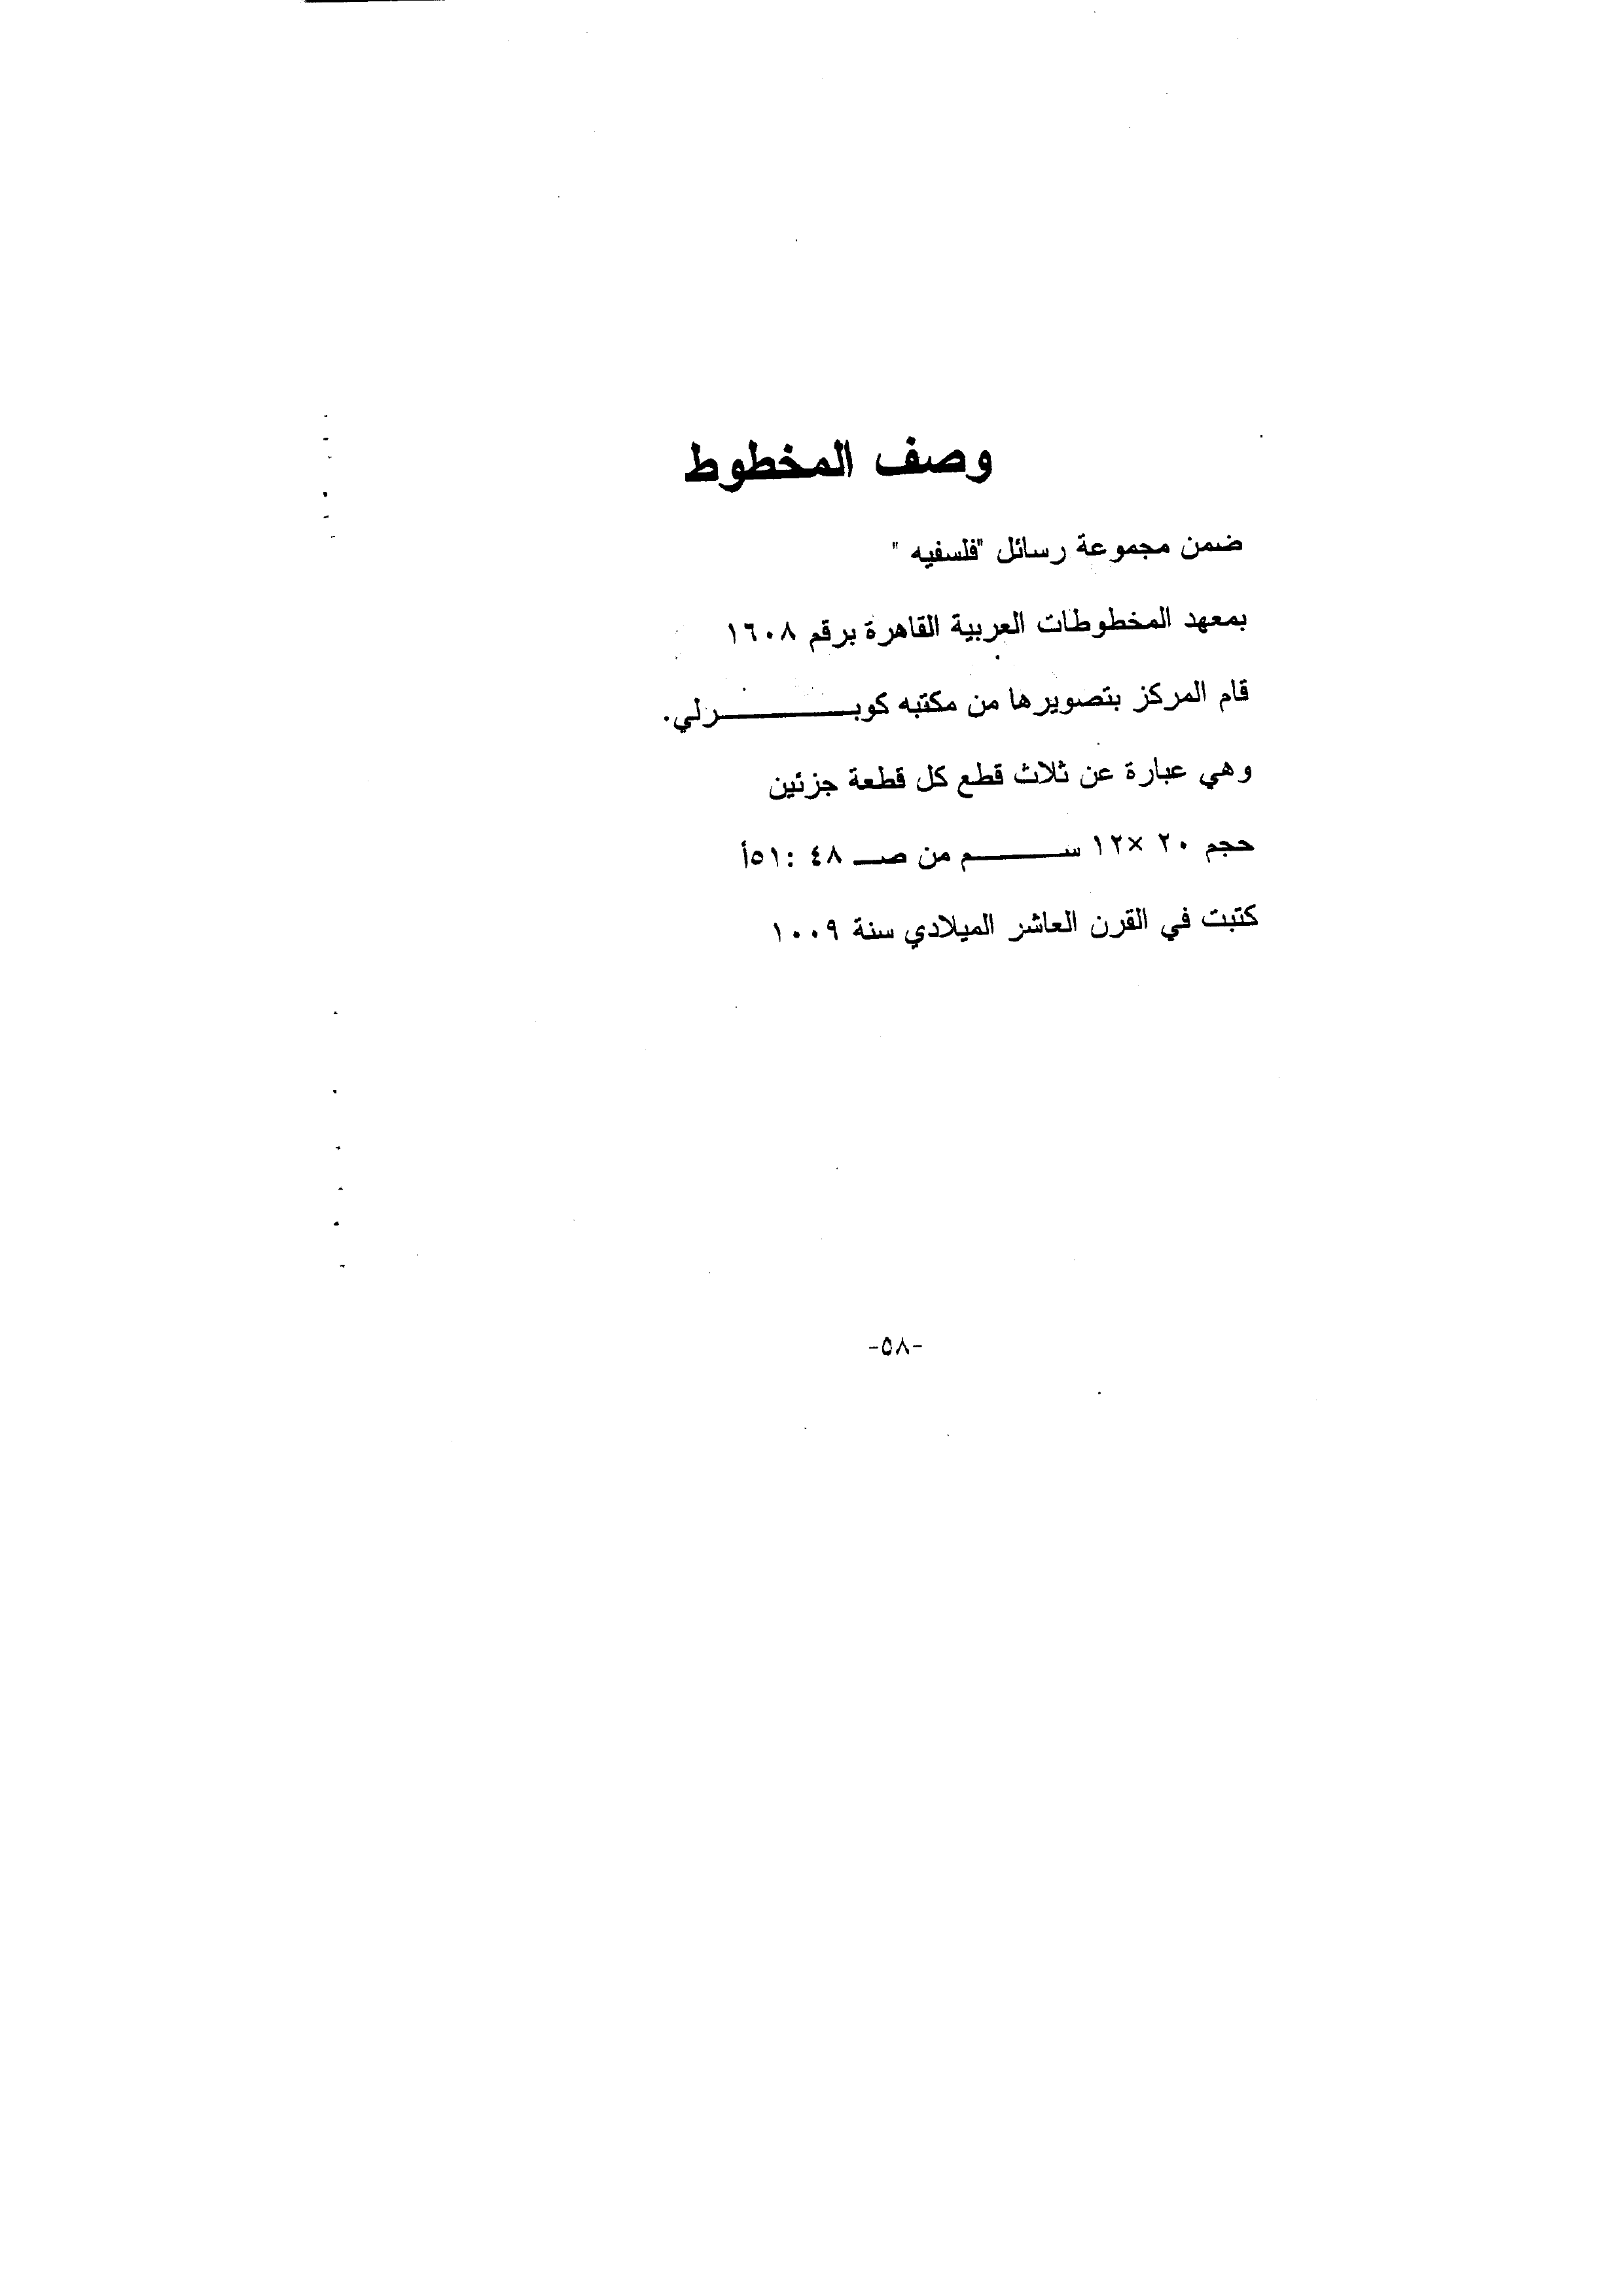 وصف المخطوط
ضمن مجموعة رسائل "فلسفيه "
بمعهد المخطوطات العربية القاهرة برقم ١٦٠٨
قام المركز بتصويرها من مكتبه كوبــــــــــرلي.
وهي عبارة عن ثلاث قطع كل قطعة جزئين
حجم ٢٠ ×١٢ ســــــــم من صــ ٤٨ :٥١أ
كتبت في القرن العاشر الميلادي سنة ١٠٠٩
-٥٨-